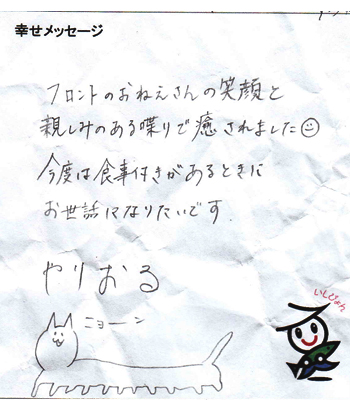 幸せメッセージ
フロントのおねえさんの笑顔と
親しみのある喋りで癒されました
今度は食事付きがあるときに
お世話になりたいです.
やりおる
ニョーン